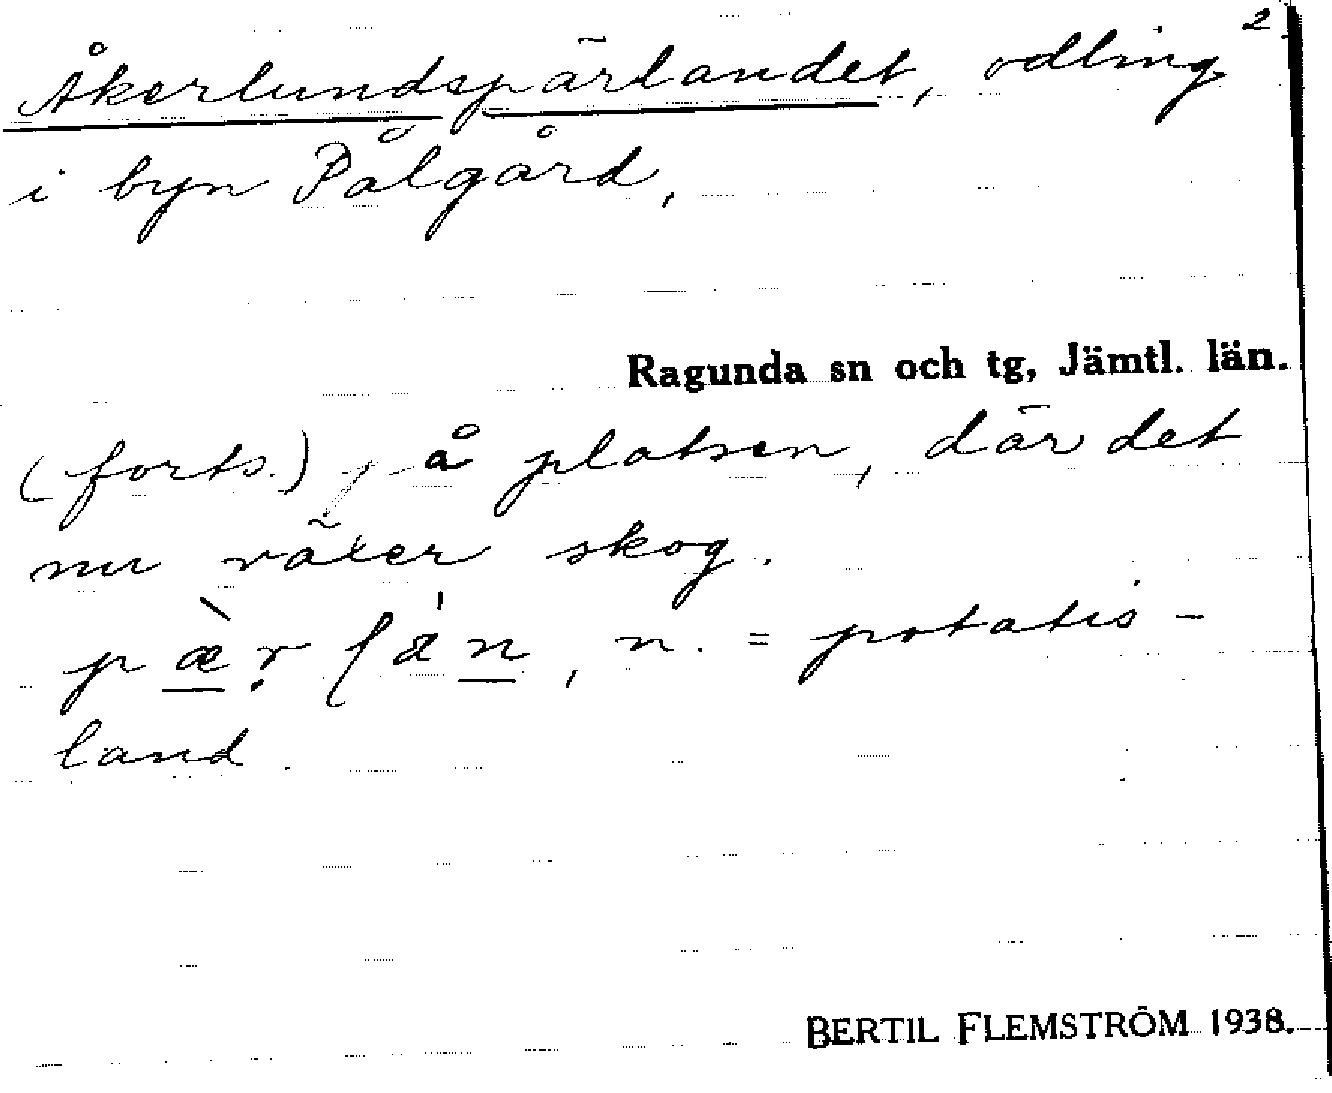 2
Åkerlundspärlandet, odling
i byn Pålgård,
Ragunda sn och tg, Jämtl. län.
(forts.) på platsen, där det
nu växer skog.
n. = potatis-
land.
BERTIL FLEMSTRÖM 1938.